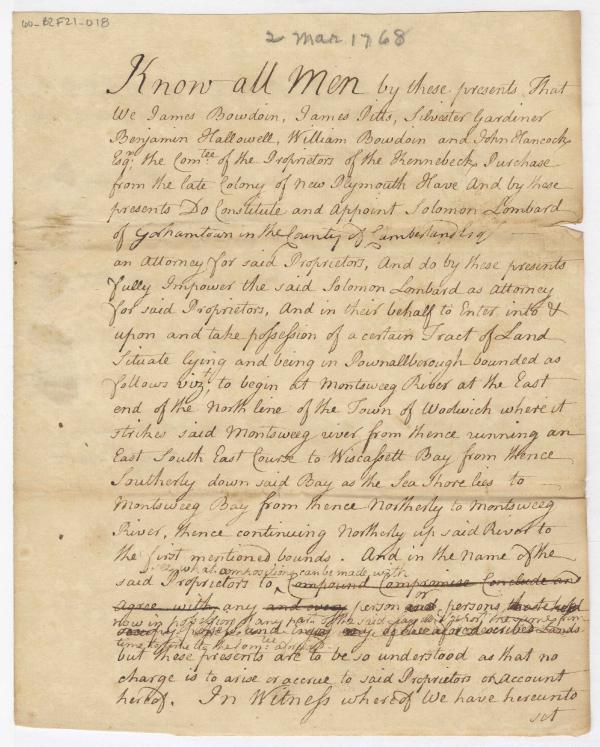 60-B2F21-018
2 Mar. 1768
Know all Men by these presents That
We James Bowdoin, James Pitts, Silvester Gardiner
Benjamin Hallowell, William Bowdoin and John Hancock
Esqrs. the Comtee of the Proprietors of the Kennebeck Purchase
from the late Colony of New Plymouth Have And by these
presents Do Constitute and Appoint Solomon Lombard
of Gorhamtown in the County of Cumberland Esq
an Attorney for said Proprietors, And do by these presents
fully Impower the said Solomon Lombard as Attorney
for said Proprietors, And in their behalf to Enter into &
upon and take possession of a certain Tract of Land
Situate lying and being in Pownallborough bounded as
follows vizt. to begin at Montsweeg River at the East
end of the North line of the Town of Woolwich where it
strikes said Montsweeg river from thence running an
East South East Course to Wiscassett Bay from thence
Southerly down said Bay as the Sea Shore lies to
Montsweeg Bay from thence Northerly to Montsweeg
River, thence continuing Northerly up said River to
the first mentioned bounds. And in the name of the
what composition can be made with
said Proprietors to Compound Compromise Conclude and
agree with any and every person or persons
now in possession of any part of the said
Lands
but these presents are to be so understood as that no
charge is to arise or accrue to said Proprietors on Account
hereof. In Witness whereof We have hereunto
set